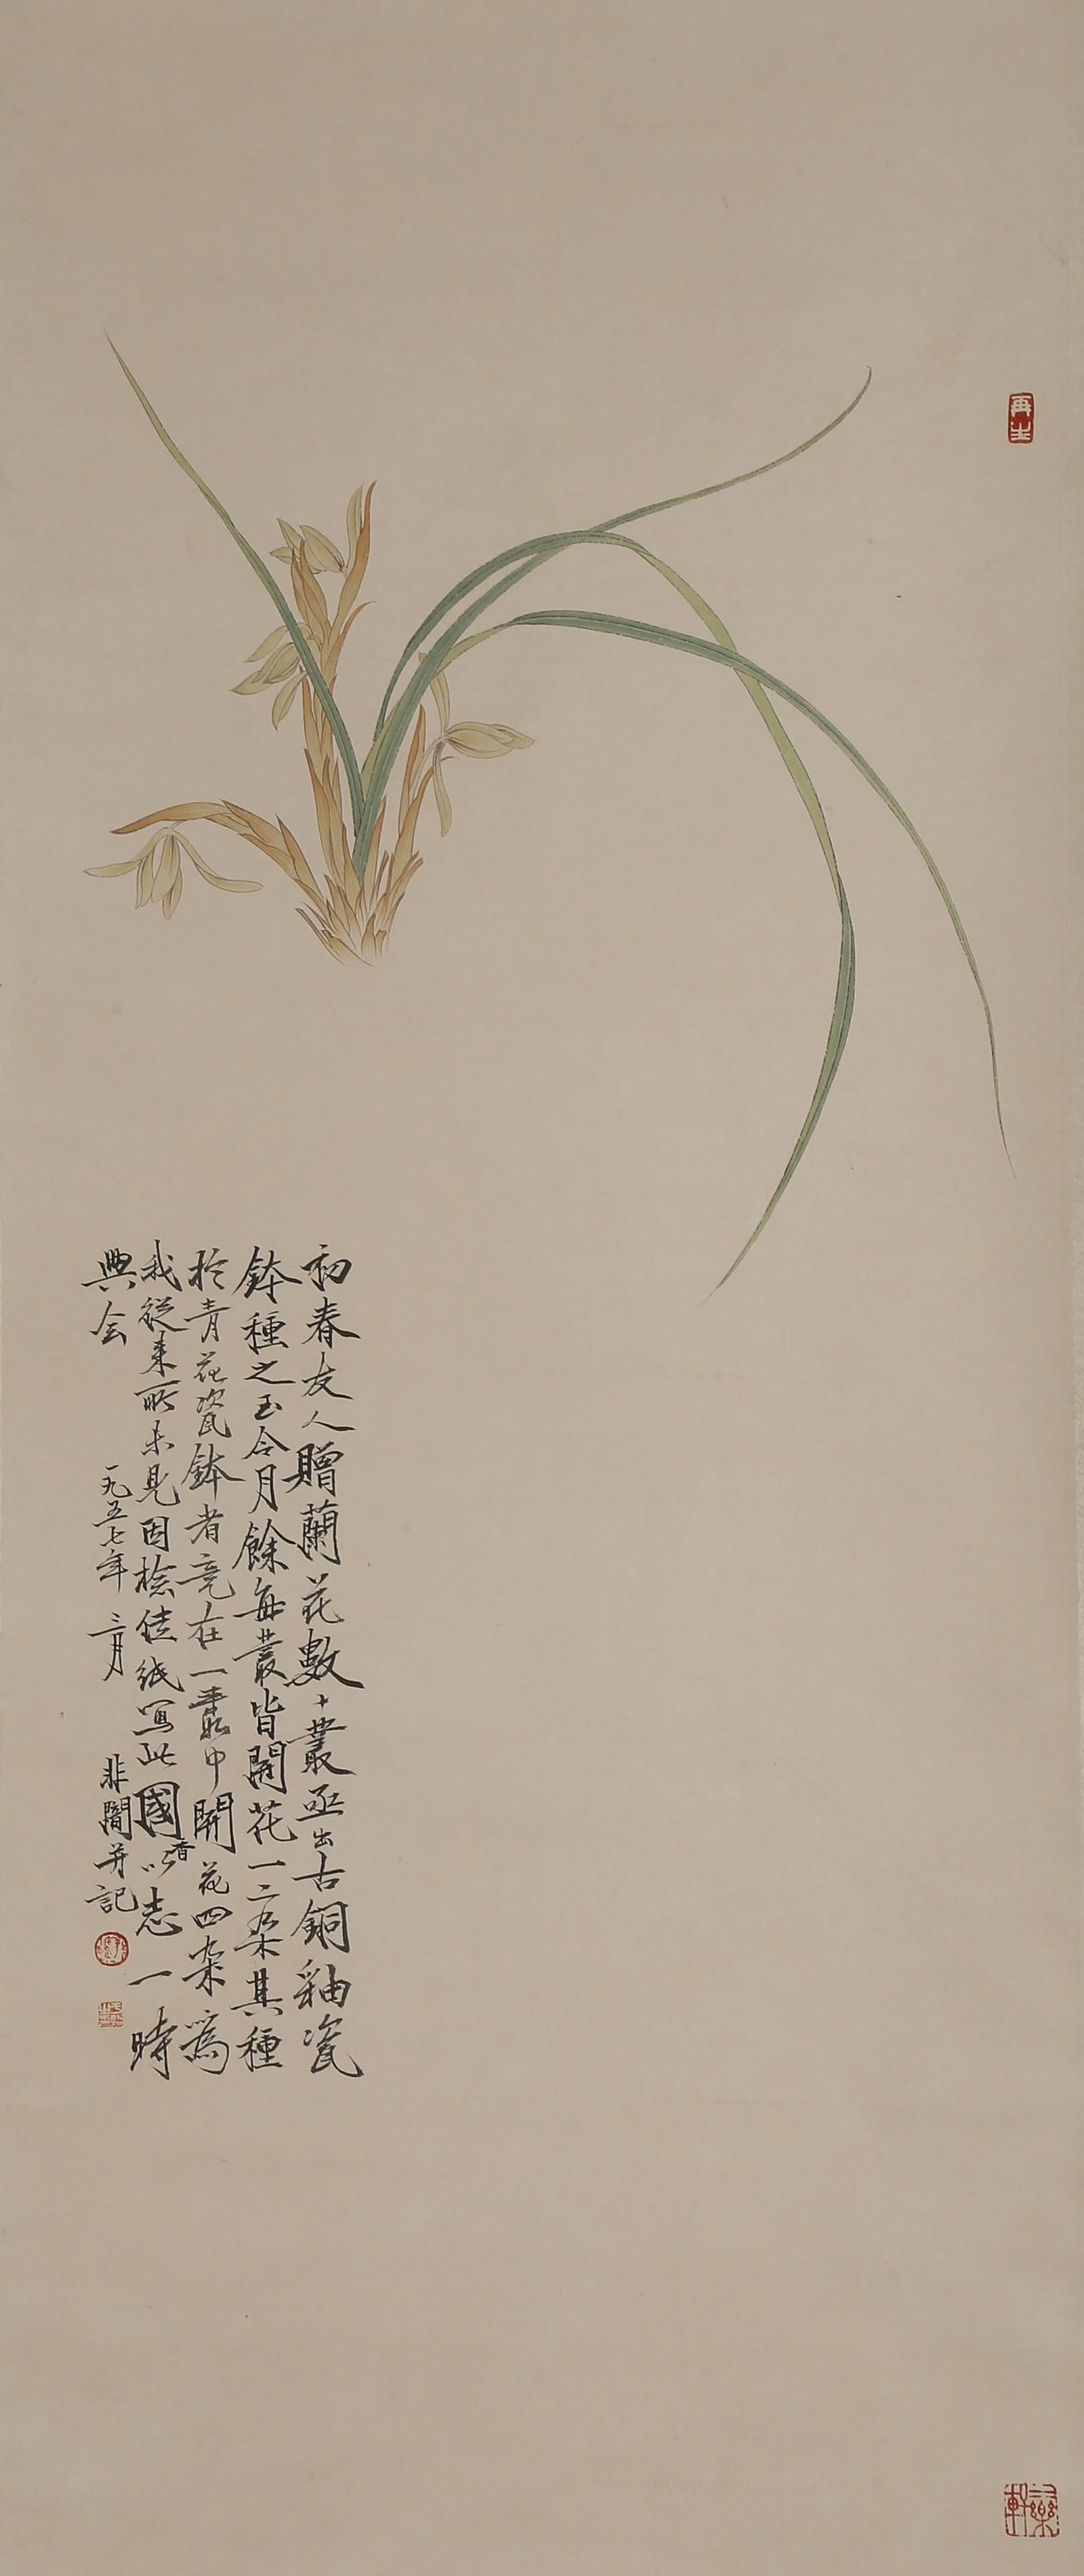 初春友人贈蘭花數十叢亟出古銅釉瓷
鉢種之至今月餘每叢皆開花一二朵其種
於青花瓷鉢者竟在一叢中開花四朵爲
我從來所未見因檢佳紙寫此國香以志一時
興会
一九五七年三月
非闇并記
再生